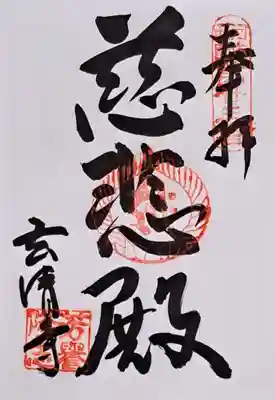 奉拝
慈悲殿
玄清寺